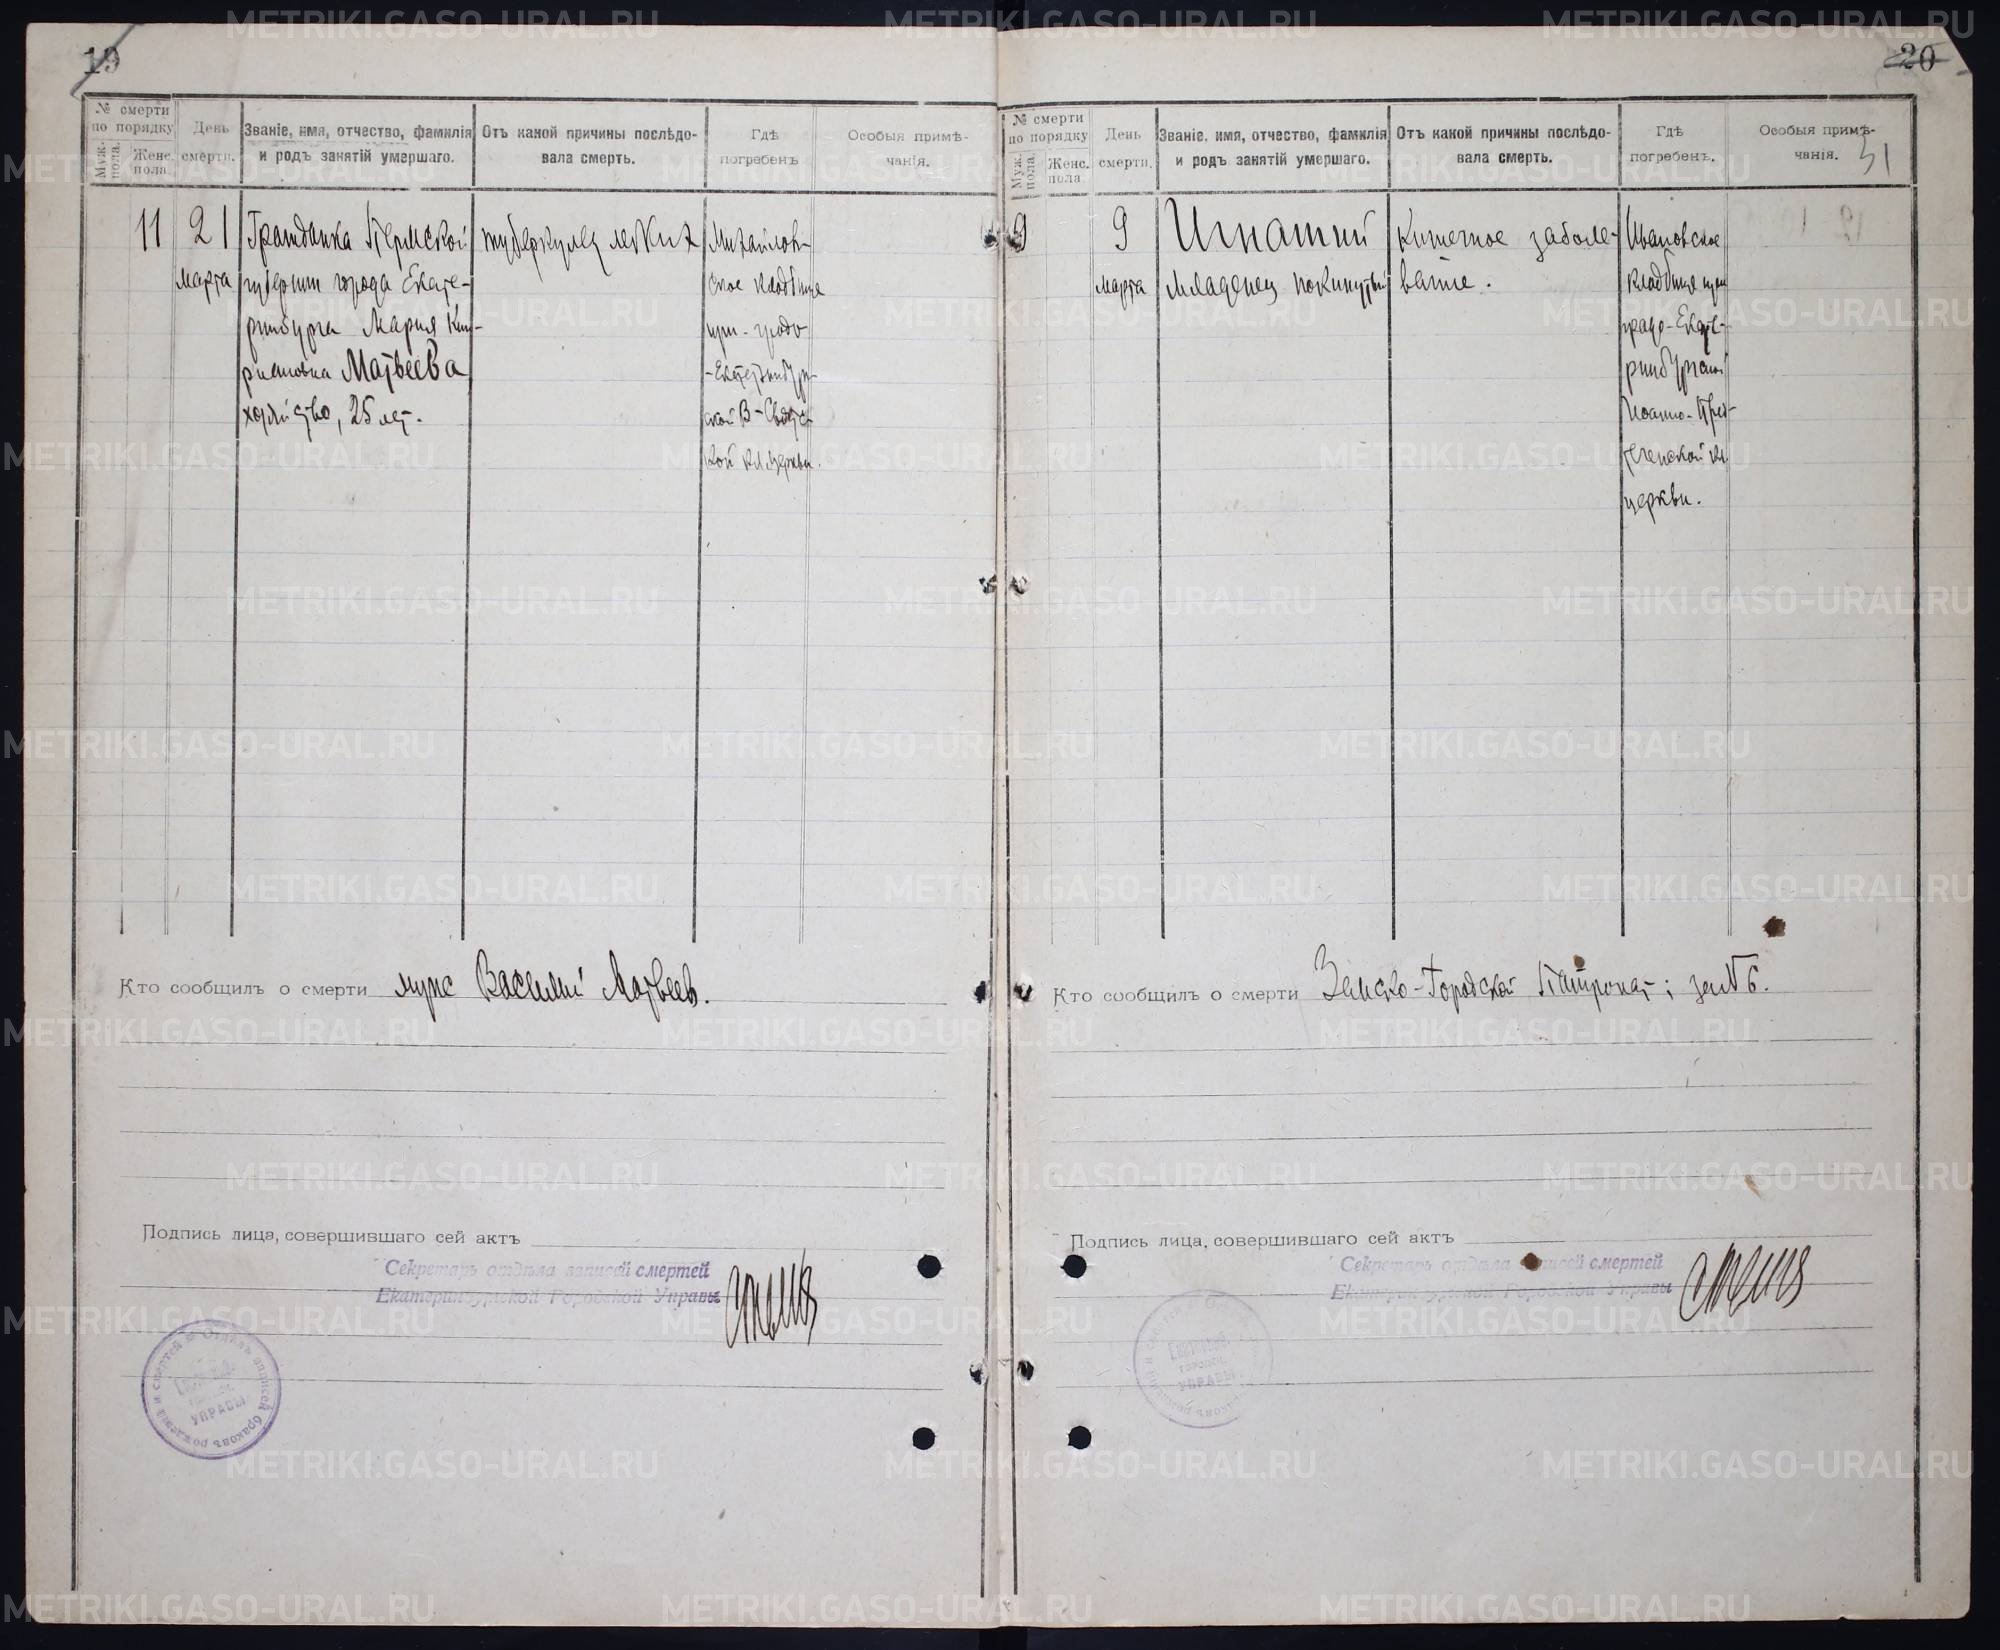 19
№ смерти
по порядку
Муж. пола.
Женс. пола.
День смерти.
Званіе, имя, отчество, фамилія
и родъ занятій умершаго.
Отъ какой причины послѣдо-
вала смерть.
Гдѣ
погребенъ
Особыя примѣ-
чанія.
11
21
марта
Гражданка Пермской
губернии города Екате-
ринбурга Мария Кип-
риановна Матвеева
хозяйство, 25 лет.
туберкулез легких
Михайлов-
ское кладбище
при градо
-Екатеринбург-
ской В-Святс-
кой кл. церкви.
Кто сообщилъ о смерти муж Василий Матвеев.
Подпись лица, совершившаго сей актъ
Секретарь отдѣла записей смертей
Екатеринбургской Городской Управы
Отдѣлъ записей браковъ рожденій и смертей
УПРАВЫ
20
31
№ смерти
по порядку
Муж. пола.
Женс. пола.
День
смерти.
Званіе, имя, отчество, фамилія
и родъ занятій умершаго.
Отъ какой причины послѣдо-
вала смерть.
Гдѣ
погребенъ.
Особыя примѣ-
чанія.
9
9
марта
Игнатий
младенец покинутый
Кишечное заболе-
вание.
Ивановское
кладбище при
градо-Екате-
ринбургской
Иоанно-Пред-
теченской кл.
церкви.
Кто сообщилъ о смерти Земско-Городской Патронат;
Подпись лица, совершившаго сей актъ
Секретарь отдѣла записей смертей
Екатеринбургской Городской Управы
Екатеринб.
ГОРОДСК.
УПРАВЫ
METRIKI.GASO-URAL.RU